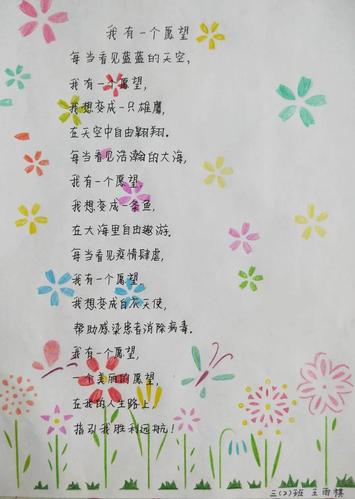 我有一个愿望
每当看见蓝蓝的天空，
我有一个愿望，
我想变成一只雄鹰，
在天空中自由翱翔。
每当看见浩瀚的大海，
我有一个愿望，
我想变成一条鱼，
在大海里自由遨游。
每当看见疫情肆虐，
我有一个愿望，
我想变成白衣天使，
帮助感染患者消除病毒。
我有一个愿望，
一个美丽的愿望，
在我的人生路上，
指引我胜利远航！
三(2)班 王雨棋